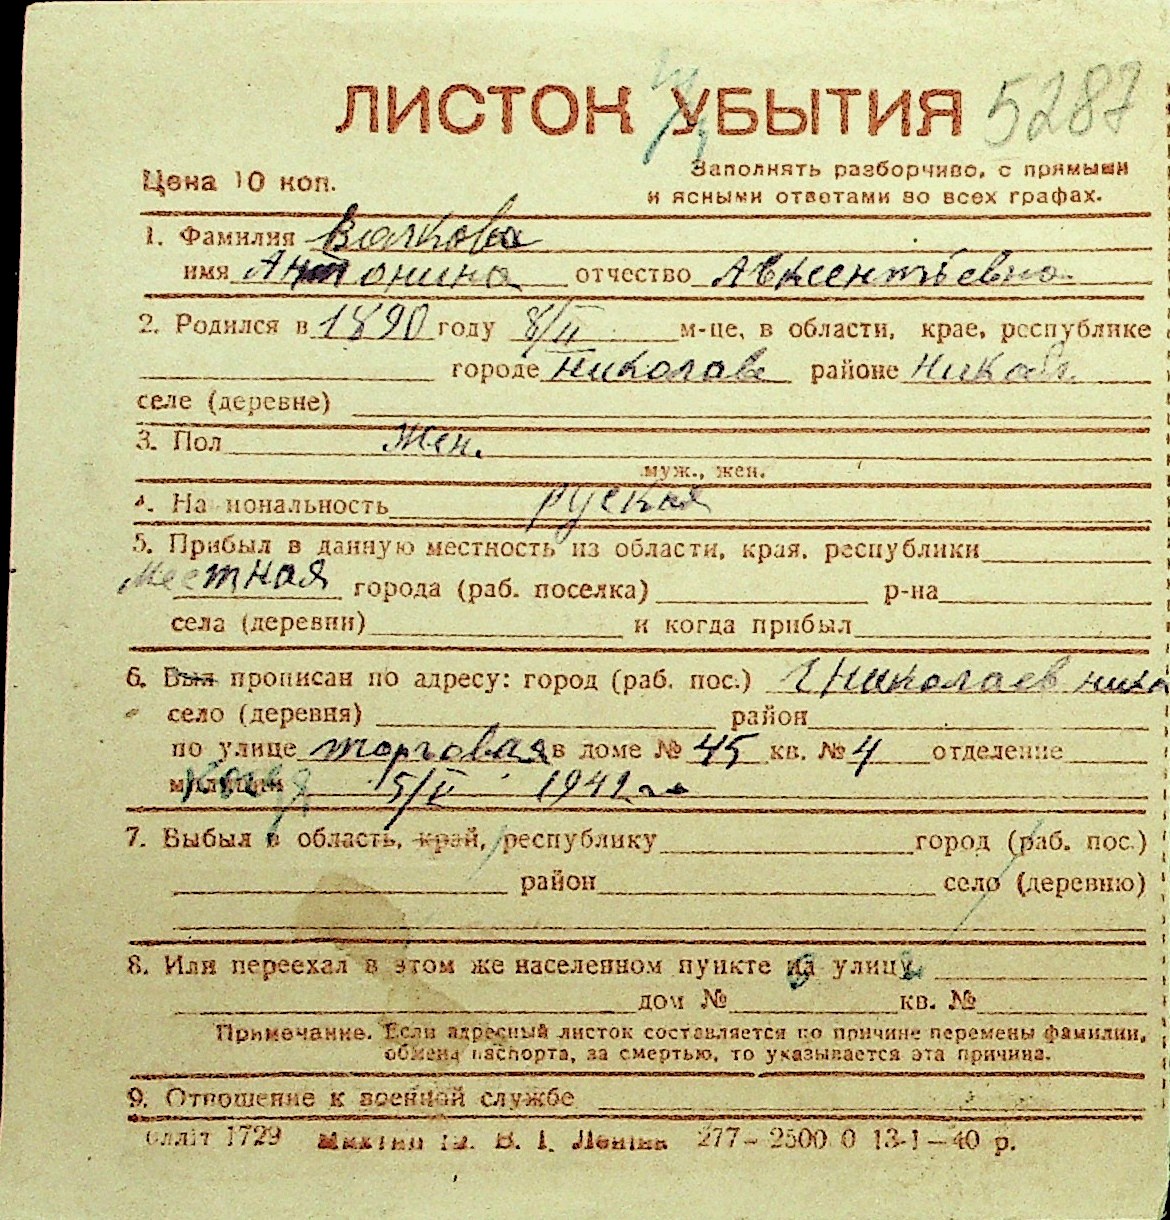 ЛИСТОК УБЫТИЯ 5287
Цена 10 коп.
Заполнять разборчиво, с прямыми
и ясными ответами во всех графах.
1. Фамилия Волкова
имя Антонина отчество Авксентьевна
2. Родился в 1890 году 8/II м-це, в области, крае, республике
городе Николаеве районе
селе (деревне)
3. Пол Жен.
муж., жен.
4. Национальность руская
5. Прибыл в данную местность из области, края, республики
Местная города (раб. поселка) р-на
села (деревни) и когда прибыл
6. Был прописан по адресу: город (раб. пос.) г Николаев
село (деревня) район
по улице торговая в доме № 45 кв. № 4 отделение
милиции 1941 г.
7. Выбыл в область, край, республику город (раб. пос.)
район село (деревню)
8. Или переехал в этом же населенном пункте на улицу
дом № кв. №
Примечание. Если адресный листок составляется по причине перемены фамилии,
обмена паспорта, за смертью, то указывается эта причина.
9. Отношение к военной службе
1729 В. І. Леніна 277– 2500 0 13-I–40 р.